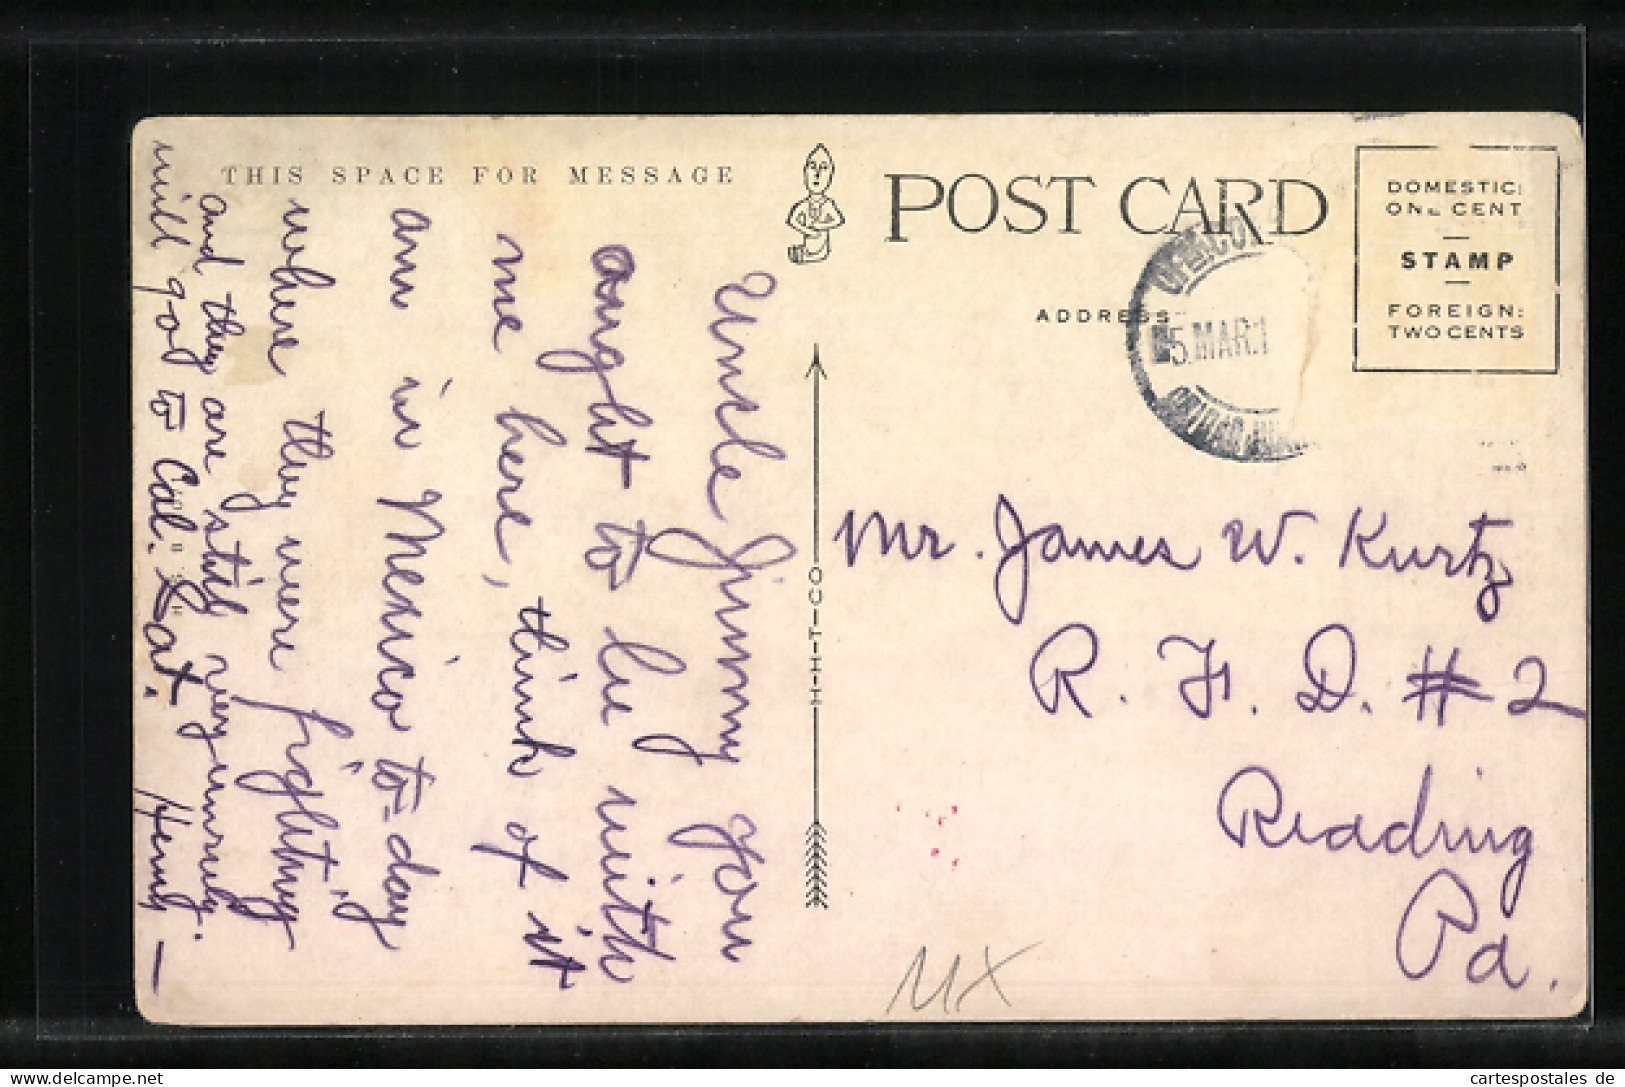 THIS SPACE FOR MESSAGE
Uncle Jimmy you
ought to be with
me here, think of it
am in Mexico to-day
where they were fighting
and they are still very unruly.
will go to Cal. Sat. Henly —
H-H-T-CO
POST CARD
ADDRESS
DOMESTIC:
ONE CENT
STAMP
FOREIGN:
TWO CENTS
5 MAR.1
Mr. James W. Kurtz
R. F. D. #2
Reading
Pa.
MX
cartespostales de